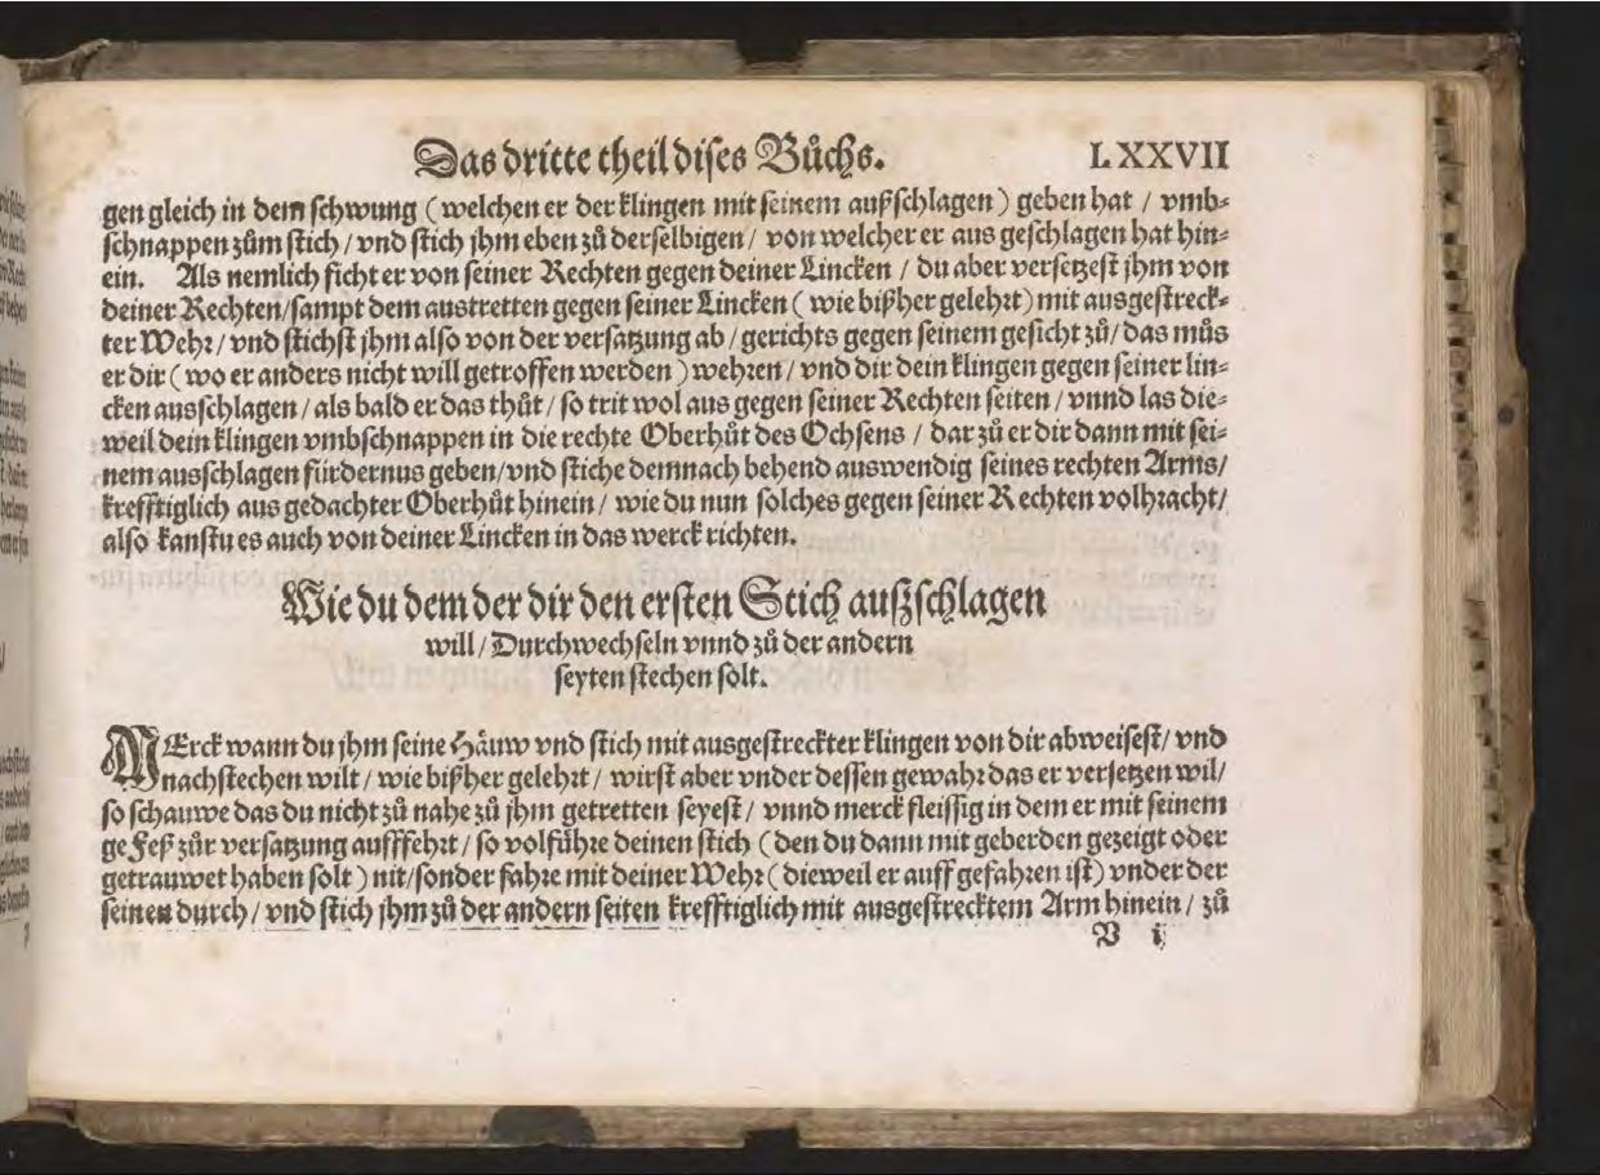 Das dritte theil dises Bůchs. LXXVII
gen gleich in dem schwung (welchen er der klingen mit seinem außschlagen) geben hat / vmb-
schnappen zům stich / vnd stich jhm eben zů derselbigen / von welcher er aus geschlagen hat hin-
ein. Als nemlich ficht er von seiner Rechten gegen deiner Lincken / du aber versetzest jhm von
deiner Rechten/sampt dem austretten gegen seiner Lincken ( wie bißher gelehrt) mit ausgestreck-
ter Wehr / vnd stichst jhm also von der versatzung ab / gerichts gegen seinem gesicht zů/ das můs
er dir ( wo er anders nicht will getroffen werden ) wehren / vnd dir dein klingen gegen seiner lin-
cken ausschlagen / als bald er das thůt / so trit wol aus gegen seiner Rechten seiten / vnnd las die-
weil dein klingen vmbschnappen in die rechte Oberhůt des Ochsens / dar zů er dir dann mit sei-
nem ausschlagen fürdernus geben/vnd stiche demnach behend auswendig seines rechten Arms/
krefftiglich aus gedachter Oberhůt hinein / wie du nun solches gegen seiner Rechten volbracht/
also kanstu es auch von deiner Lincken in das werck richten.
Wie du dem der dir den ersten Stich außschlagen
will / Durchwechseln vnnd zů der andern
seyten stechen solt.
MErck wann du jhm seine Häuw vnd stich mit ausgestreckter klingen von dir abweisest/ vnd
nachstechen wilt / wie bißher gelehrt / wirst aber vnder dessen gewahr das er versetzen wil/
so schauwe das du nicht zů nahe zů jhm getretten seyest / vnnd merck fleissig in dem er mit seinem
gefeß zůr versatzung aufffehrt / so volführe deinen stich (den du dann mit geberden gezeigt oder
getrauwet haben solt ) nit/sonder fahre mit deiner Wehr ( dieweil er auff gefahren ist) vnder der
seinen durch / vnd stich jhm zů der andern seiten krefftiglich mit ausgestrecktem Arm hinein / zů
V ij